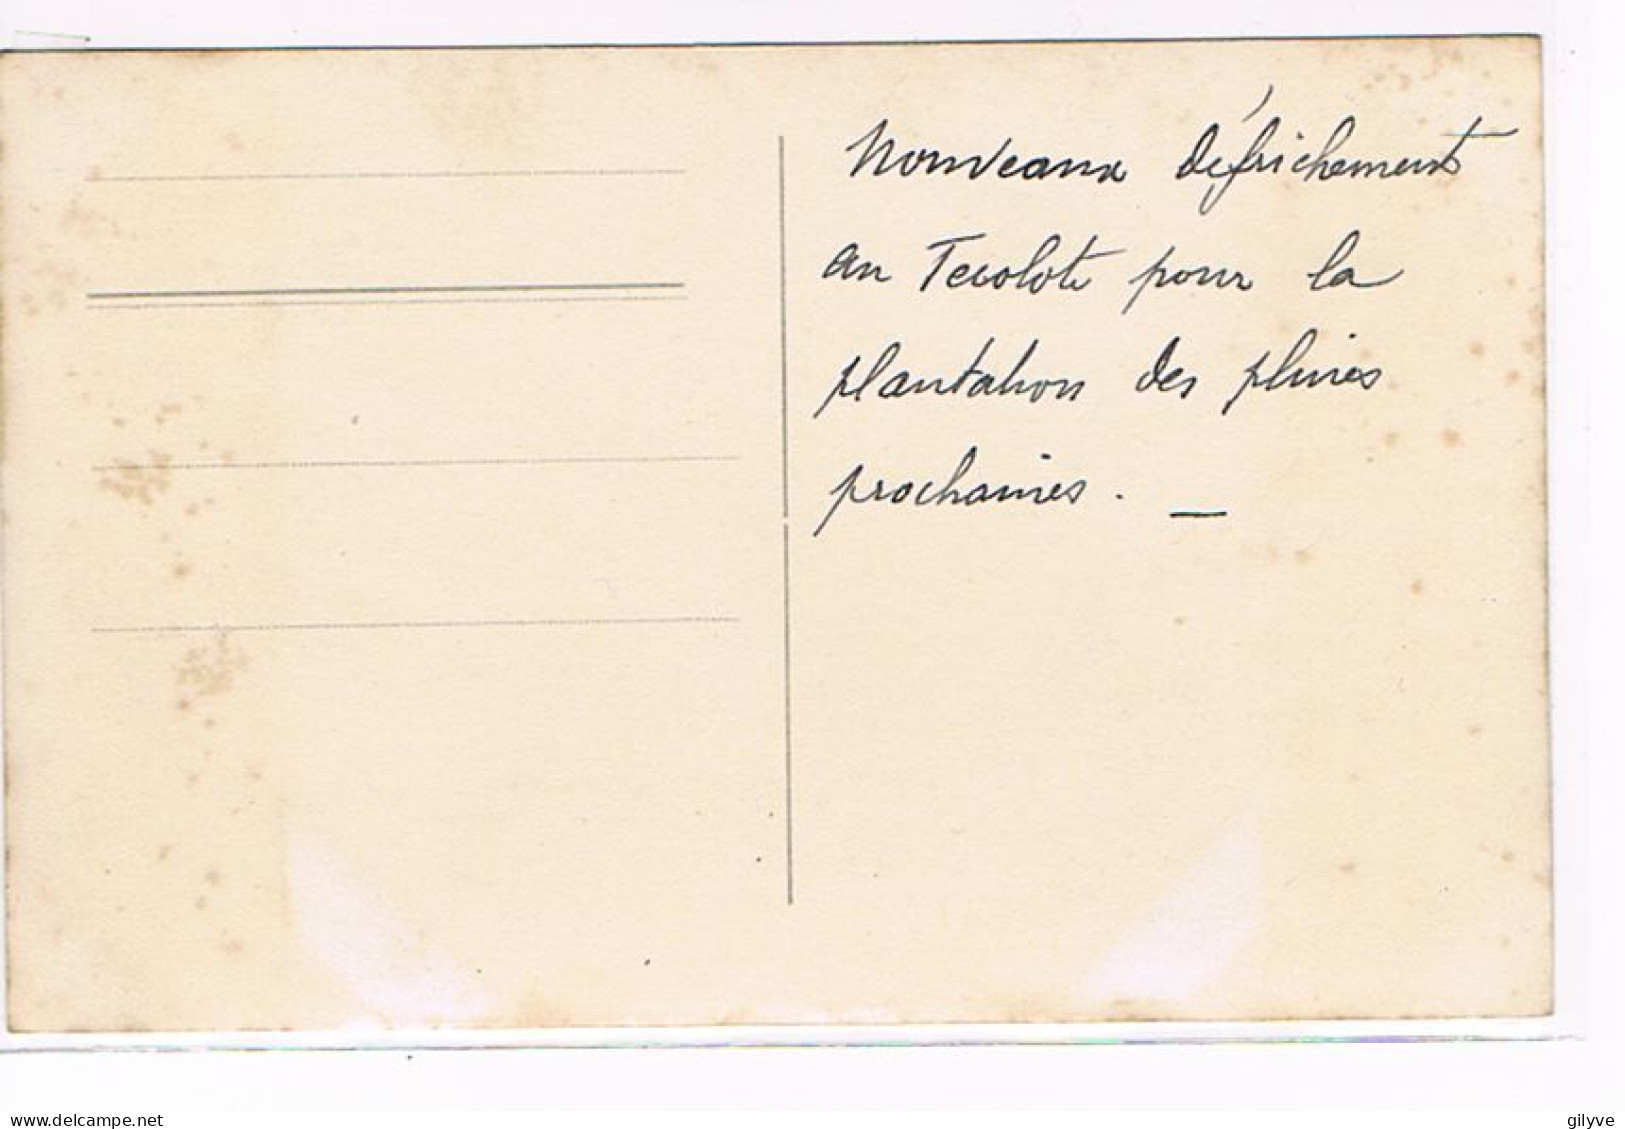 Nouveaux défrichements
au Tecolote pour la
plantation des pluies
prochaines. _
www.delcampe.net
gilyve